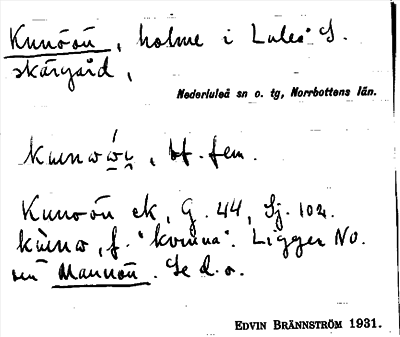 Kunoön, holme i Luleå S.
skärgård,
Nederluleå sn o. tg, Norrbottens län.
bf. fem.
Kunoön ek, G. 44, Sj. 102.
f. "kvinna". Ligger No.
om Mannön. Se d.o.
EDVIN BRÄNNSTRÖM 1931.